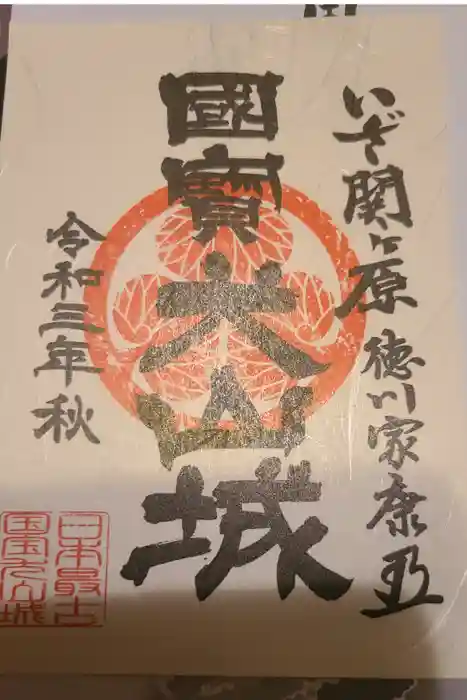 いざ関ヶ原 徳川家康
國寳犬山城
令和三年秋
日本最古
国宝犬山城